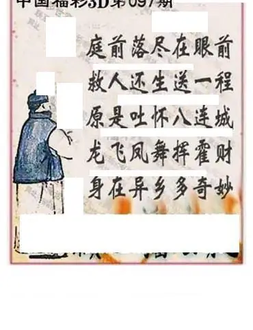 中国福彩3D第097期
庭前落尽在眼前
救人还生送一程
原是吐怀八连城
龙飞凤舞挥霍财
身在异乡多奇妙